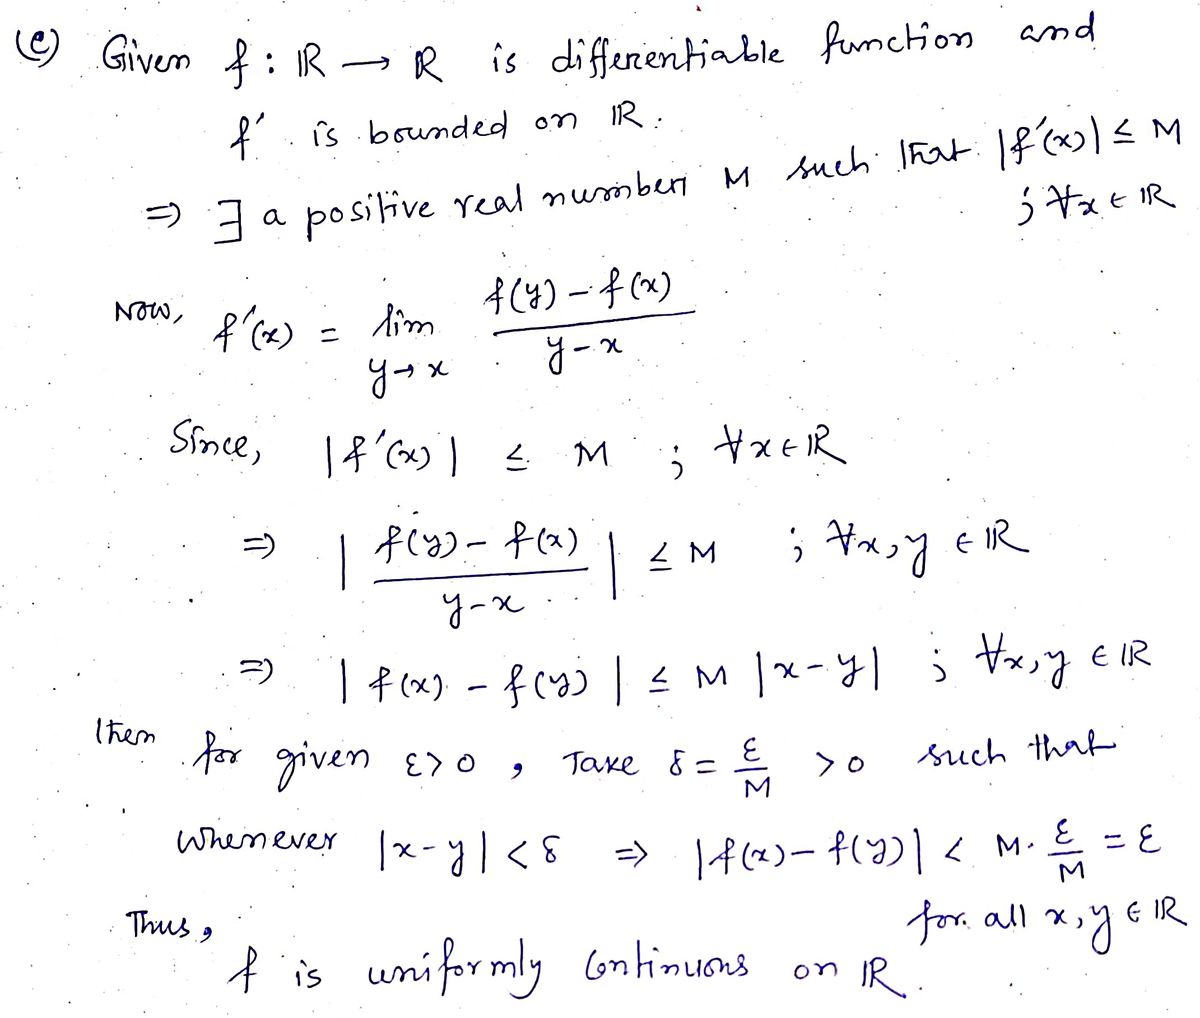 (e) Given f : ℝ → ℝ is differentiable function and
f′ is bounded on ℝ.
⇒ ∃ a positive real number M such that |f′(x)| ≤ M
; ∀x ∈ ℝ
Now, f′(x) = lim_{y→x} (f(y) − f(x))/(y − x)
Since, |f′(x)| ≤ M ; ∀x ∈ ℝ
⇒ |(f(y) − f(x))/(y − x)| ≤ M ; ∀x, y ∈ ℝ
⇒ |f(x) − f(y)| ≤ M |x − y| ; ∀x, y ∈ ℝ
Then for given ε > 0, Take δ = ε/M > 0 such that
whenever |x − y| < δ ⇒ |f(x) − f(y)| < M · ε/M = ε
for all x, y ∈ ℝ
Thus,
f is uniformly continuous on ℝ.